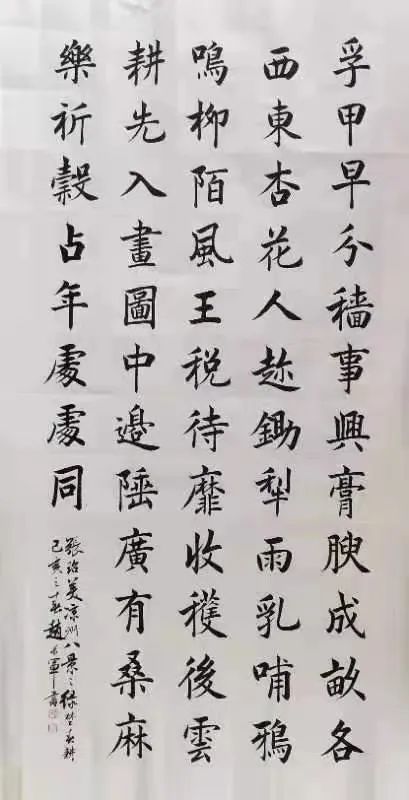 孚甲早分穡事興膏腴成畝各
西東杏花人趂鋤犁雨乳哺鴉
鳴柳陌風王税待靡收穫後雲
耕先入畫圖中邊陲廣有桑麻
樂祈穀占年處處同
張玿美凉州八景之綠野春耕
己亥之十
趙
軍書